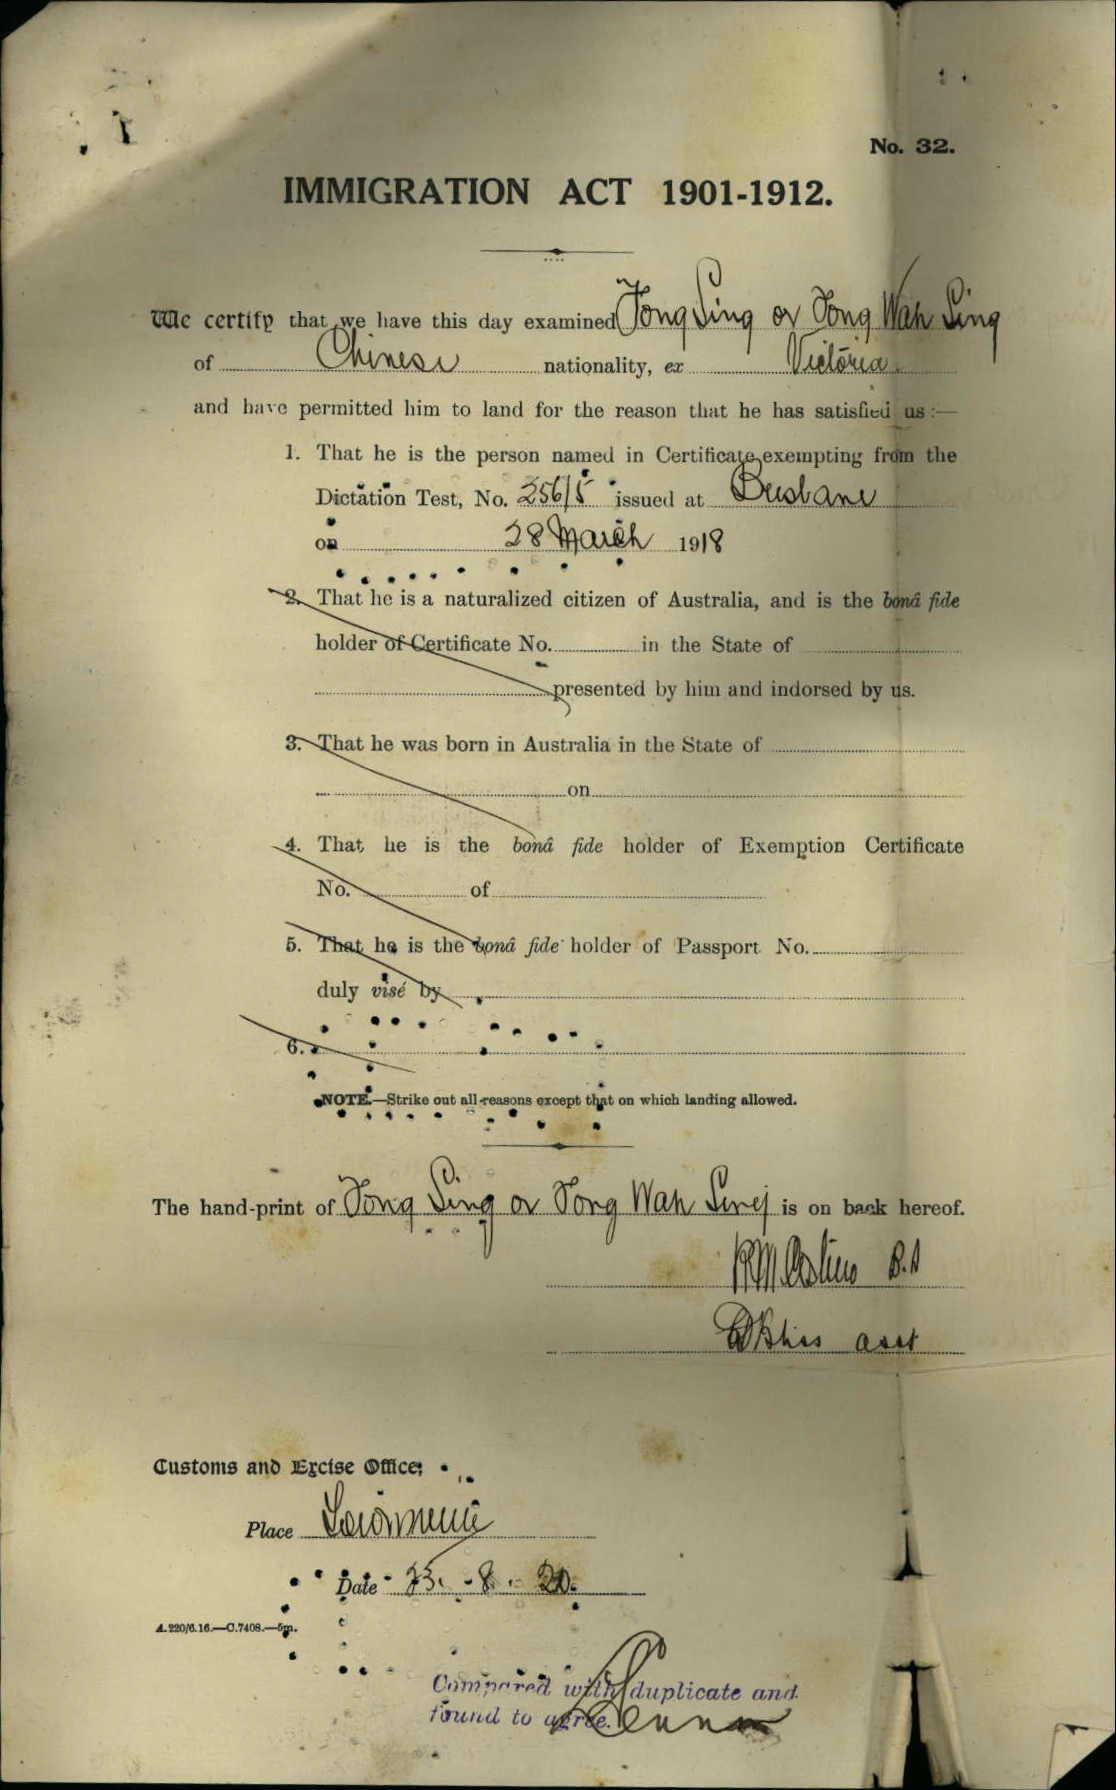 No. 32.
IMMIGRATION ACT 1901-1912.
We certify that we have this day examined Tong Sing or Tong Wah Sing
of Chinese nationality, ex Victoria
and have permitted him to land for the reason that he has satisfied us :—
1. That he is the person named in Certificate exempting from the
Dictation Test, No. 256/5 issued at Brisbane
on 28 March 1918
2. That he is a naturalized citizen of Australia, and is the bonâ fide
holder of Certificate No. in the State of
presented by him and indorsed by us.
3. That he was born in Australia in the State of
on
4. That he is the bonâ fide holder of Exemption Certificate
No. of
5. That he is the bonâ fide holder of Passport No.
duly visé by
6.
NOTE.—Strike out all reasons except that on which landing allowed.
The hand-print of Tong Sing or Tong Wah Sing is on back hereof.
Bliss asst
Customs and Excise Office:
Place
Date 23. - 8. 20.
A.220/6.16.—C.7408.—5m.
Compared with duplicate and
found to agree.